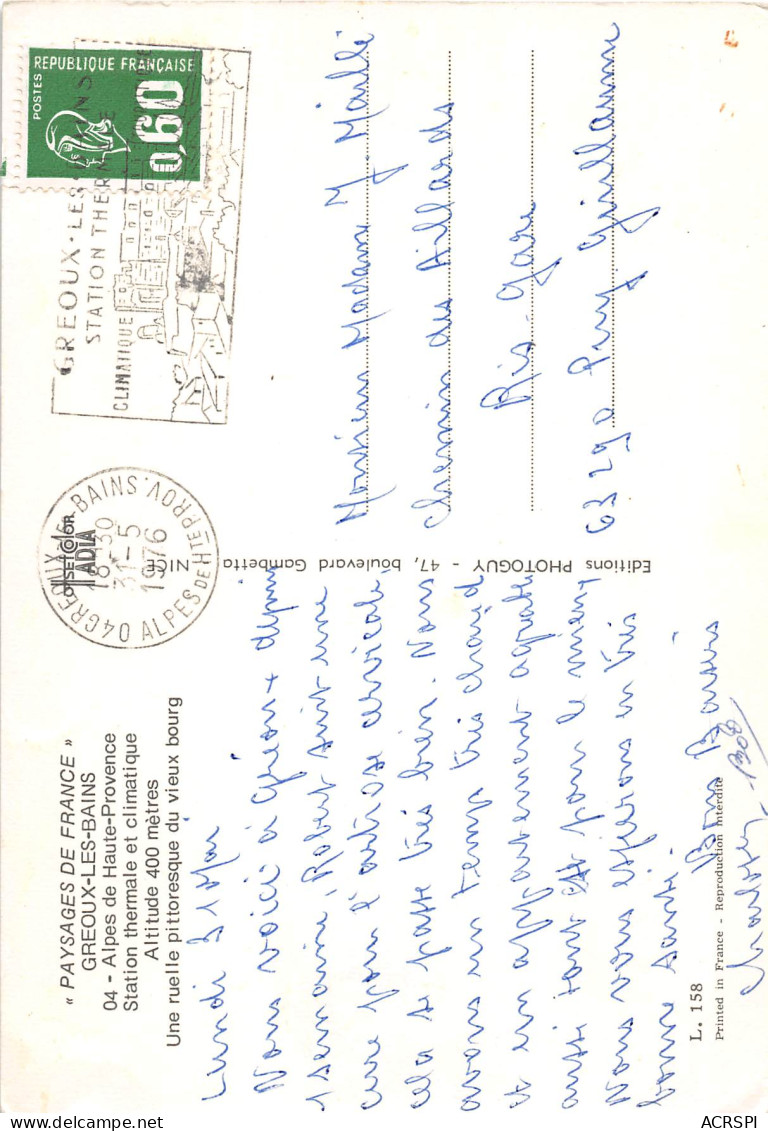 « PAYSAGES DE FRANCE »
GREOUX-LES-BAINS
04 - Alpes de Haute-Provence
Station thermale et climatique
Altitude 400 mètres
Une ruelle pittoresque du vieux bourg
Lundi 31 Mai
Nous voici à Gréoux depuis
1 semaine, Robert suit une
cure pour l'artrose cervicale
cela se passe très bien. Nous
avons un temps très chaud
et un appartement agréable
aussi tout est pour le mieux
Nous vous espérons en très
bonne santé.
Bons Baisers
L. 158
Printed in France - Reproduction interdite
Editions PHOTOGUY - 47, boulevard Gambetta NICE
OFFSETCOLOR
TADIA
04 GREOUX-LES-BAINS
18-30
31-5
1976
ALPES DE HTE PROV.
GREOUX-LES-BAINS
STATION THERMALE
CLIMATIQUE
REPUBLIQUE FRANÇAISE
POSTES
0,60
Monsieur Madame J. Maillé
Chemin des Aillards
Ris-Gare
63290 Puy Guillaume
ACRSPI